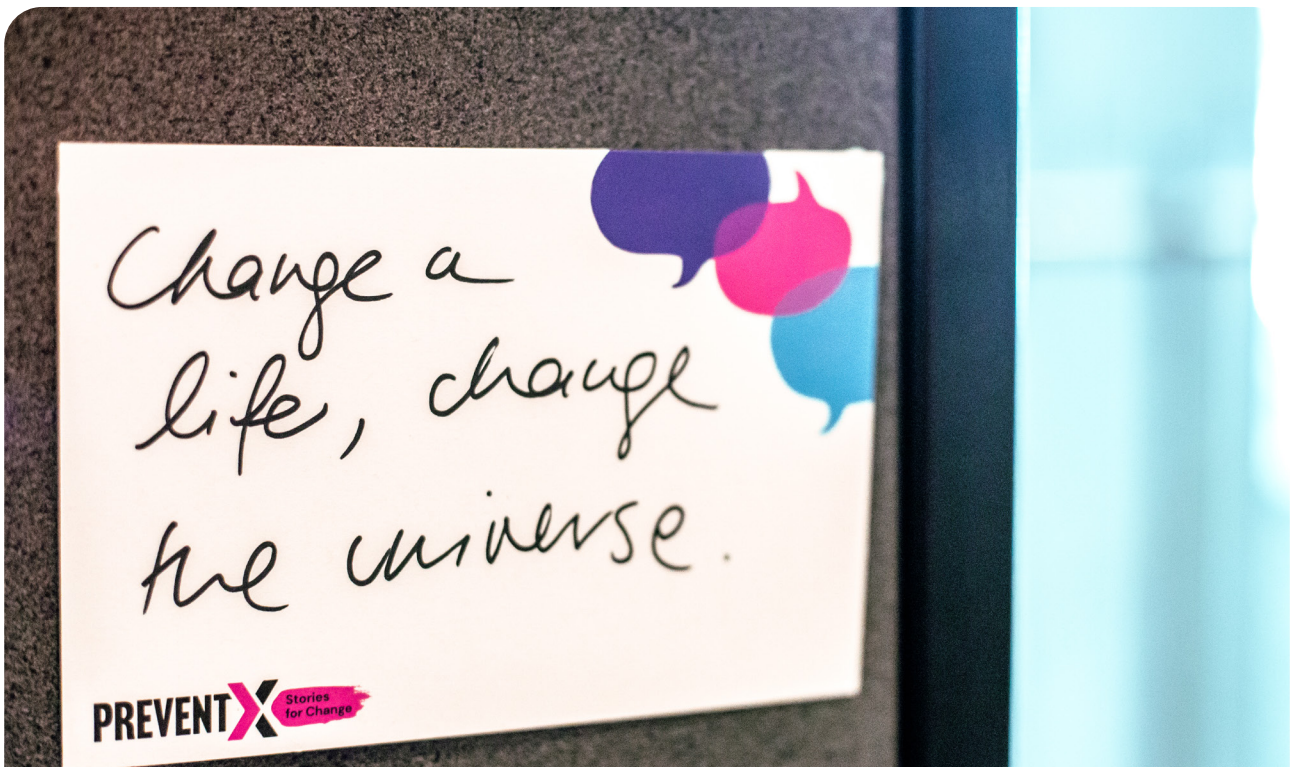 Change a
life, change
the universe.
PREVENTX
Stories
for Change